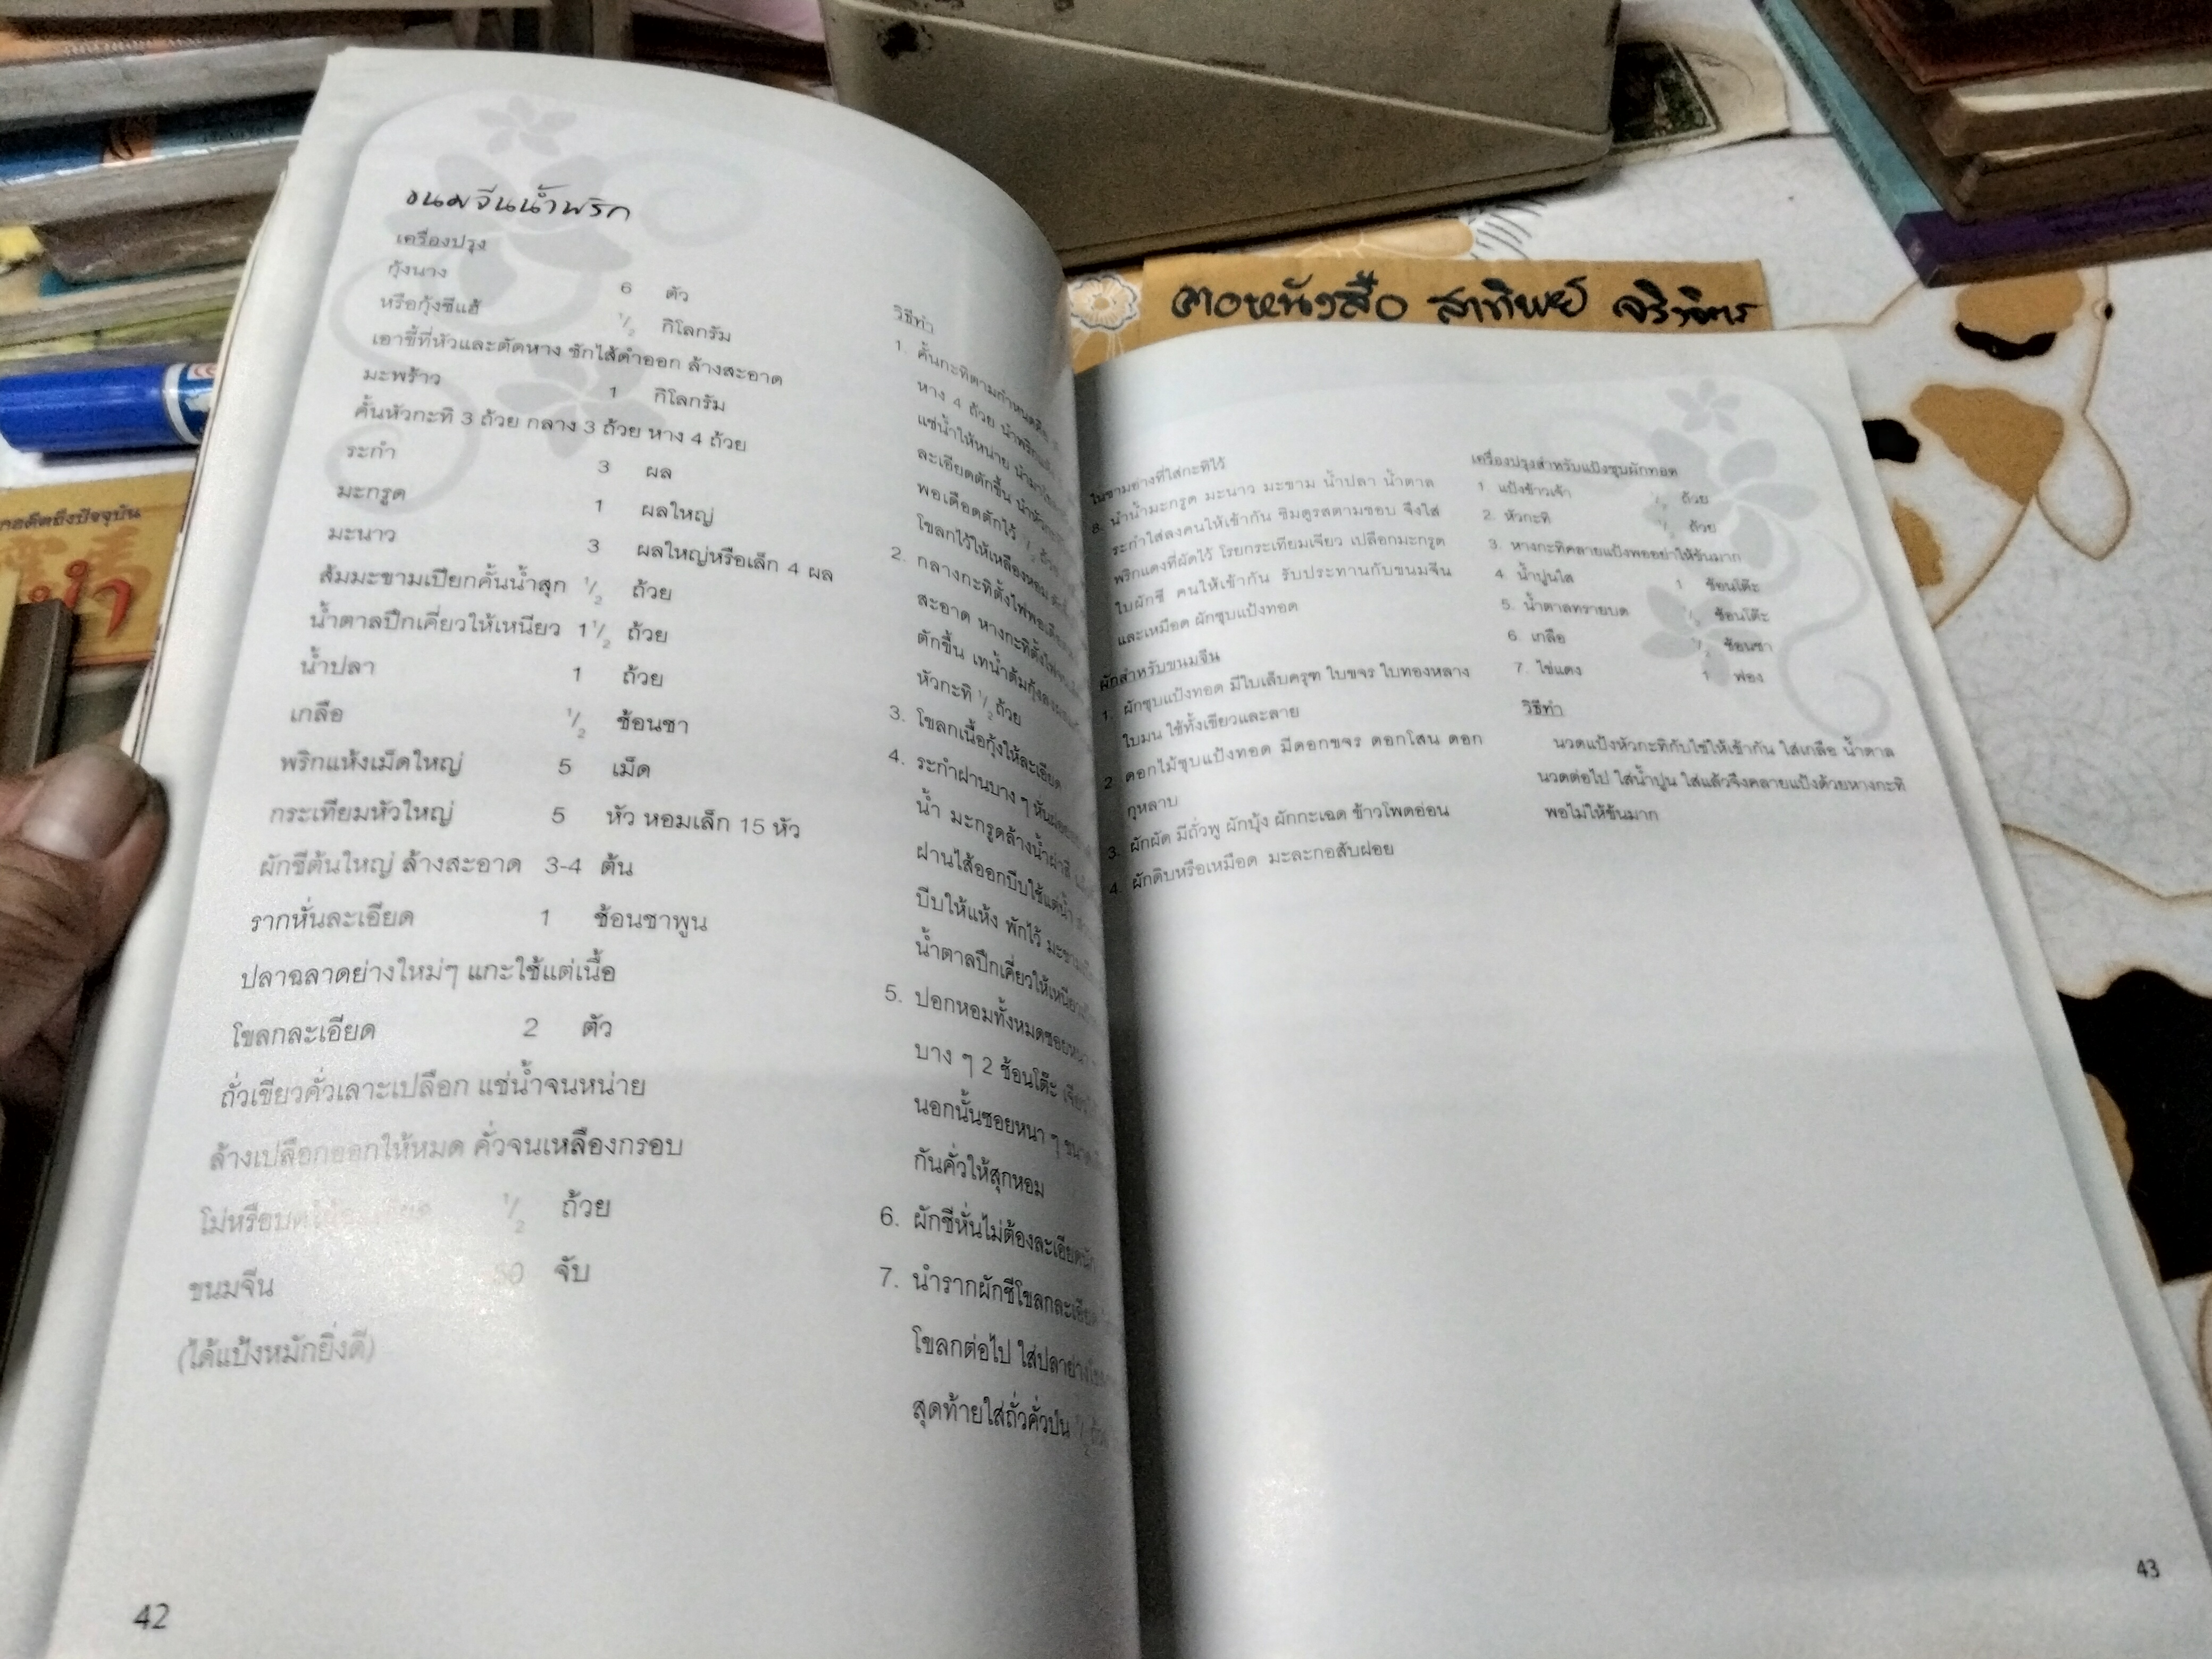 ขนมจีนน้ำพริก
เครื่องปรุง
กุ้งนาง 6 ตัว
หรือกุ้งชีแฮ้ 1/2 กิโลกรัม
เอาขี้ที่หัวและตัดหาง ชักไส้ดำออก ล้างสะอาด
มะพร้าว 1 กิโลกรัม
คั้นหัวกะทิ 3 ถ้วย กลาง 3 ถ้วย หาง 4 ถ้วย
ระกำ 3 ผล
มะกรูด 1 ผลใหญ่
มะนาว 3 ผลใหญ่หรือเล็ก 4 ผล
ส้มมะขามเปียกคั้นน้ำสุก 1/2 ถ้วย
น้ำตาลปึกเคี่ยวให้เหนียว 1 1/2 ถ้วย
น้ำปลา 1 ถ้วย
เกลือ 1/2 ช้อนชา
พริกแห้งเม็ดใหญ่ 5 เม็ด
กระเทียมหัวใหญ่ 5 หัว หอมเล็ก 15 หัว
ผักชีต้นใหญ่ ล้างสะอาด 3-4 ต้น
รากหั่นละเอียด 1 ช้อนชาพูน
ปลาฉลาดย่างใหม่ๆ แกะใช้แต่เนื้อ
โขลกละเอียด 2 ตัว
ถั่วเขียวคั่วเลาะเปลือก แช่น้ำจนหน่าย
ล้างเปลือกออกให้หมด คั่วจนเหลืองกรอบ
โม่หรือบด 1/2 ถ้วย
ขนมจีน จับ
(ได้แป้งหมักยิ่งดี)
42
วิธีทำ
1. คั้นกะทิตามกำหนดคือ
หาง 4 ถ้วย นำพริกแห้ง
แช่น้ำให้หน่าย
ละเอียดตักขึ้น นำหัวกะทิ
พอเดือดตักไว้ 1/2 ถ้วย
โขลกไว้ให้เหลืองหอม
2. กลางกะทิตั้งไฟพอเดือด
สะอาด หางกะทิตั้งไฟ
ตักขึ้น เทน้ำต้มกุ้ง
หัวกะทิ 1/2 ถ้วย
3. โขลกเนื้อกุ้งให้ละเอียด
4. ระกำฝานบาง ๆ หั่น
น้ำ มะกรูดล้างน้ำผ่าสี่
ฝานไส้ออกบีบใช้แต่น้ำ
บีบให้แห้ง พักไว้
น้ำตาลปึกเคี่ยวให้เหนียว
5. ปอกหอมทั้งหมดซอยหนา
บาง ๆ 2 ช้อนโต๊ะ
นอกนั้นซอยหนา ๆ
กันคั่วให้สุกหอม
6. ผักชีหั่นไม่ต้องละเอียดนัก
7. นำรากผักชีโขลกละเอียด
โขลกต่อไป ใส่ปลาย่าง
สุดท้ายใส่ถั่วคั่วป่น 1/2 ถ้วย
ตอหนังสือ
ในชามอ่างที่ใส่กะทิไว้
8. นำน้ำมะกรูด มะนาว มะขาม น้ำปลา น้ำตาล
ระกำใส่ลงคนให้เข้ากัน ชิมดูรสตามชอบ จึงใส่
พริกแดงที่ผัดไว้ โรยกระเทียมเจียว เปลือกมะกรูด
ใบผักชี คนให้เข้ากัน รับประทานกับขนมจีน
และเหมือด ผักชุบแป้งทอด
ผักสำหรับขนมจีน
1. ผักชุบแป้งทอด มีใบเล็บครุฑ ใบขจร ใบทองหลาง
ใบมน ใช้ทั้งเขียวและลาย
2. ดอกไม้ชุบแป้งทอด มีดอกขจร ดอกโสน ดอก
กุหลาบ
3. ผักผัด มีถั่วพู ผักบุ้ง ผักกะเฉด ข้าวโพดอ่อน
4. ผักดิบหรือเหมือด มะละกอสับฝอย
เครื่องปรุงสำหรับแป้งชุบผักทอด
1. แป้งข้าวเจ้า 1/2 ถ้วย
2. หัวกะทิ 1/2 ถ้วย
3. หางกะทิคลายแป้งพออย่าให้ข้นมาก
4. น้ำปูนใส 1 ช้อนโต๊ะ
5. น้ำตาลทรายบด 1/2 ช้อนโต๊ะ
6. เกลือ 1/2 ช้อนชา
7. ไข่แดง 1 ฟอง
วิธีทำ
นวดแป้งหัวกะทิกับไข่ให้เข้ากัน ใส่เกลือ น้ำตาล
นวดต่อไป ใส่น้ำปูน ใส่แล้วจึงคลายแป้งด้วยหางกะทิ
พอไม่ให้ข้นมาก
43